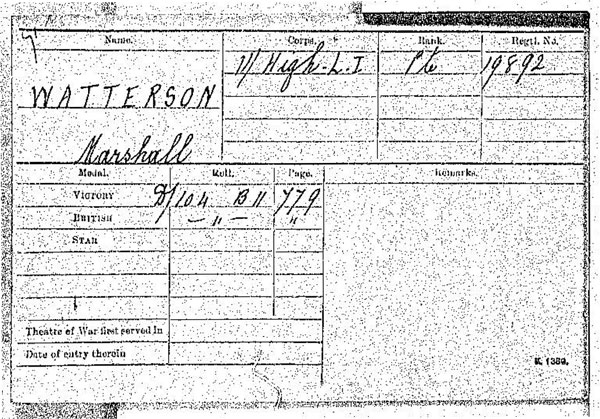 Name. Corps. Rank. Regtl. No.
11/ High. L. I Pte 19892
WATTERSON
Marshall
Medal. Roll. Page. Remarks.
VICTORY D/104 B11 779
BRITISH — " — "
STAR
Theatre of War first served in
Date of entry therein
K. 1380.